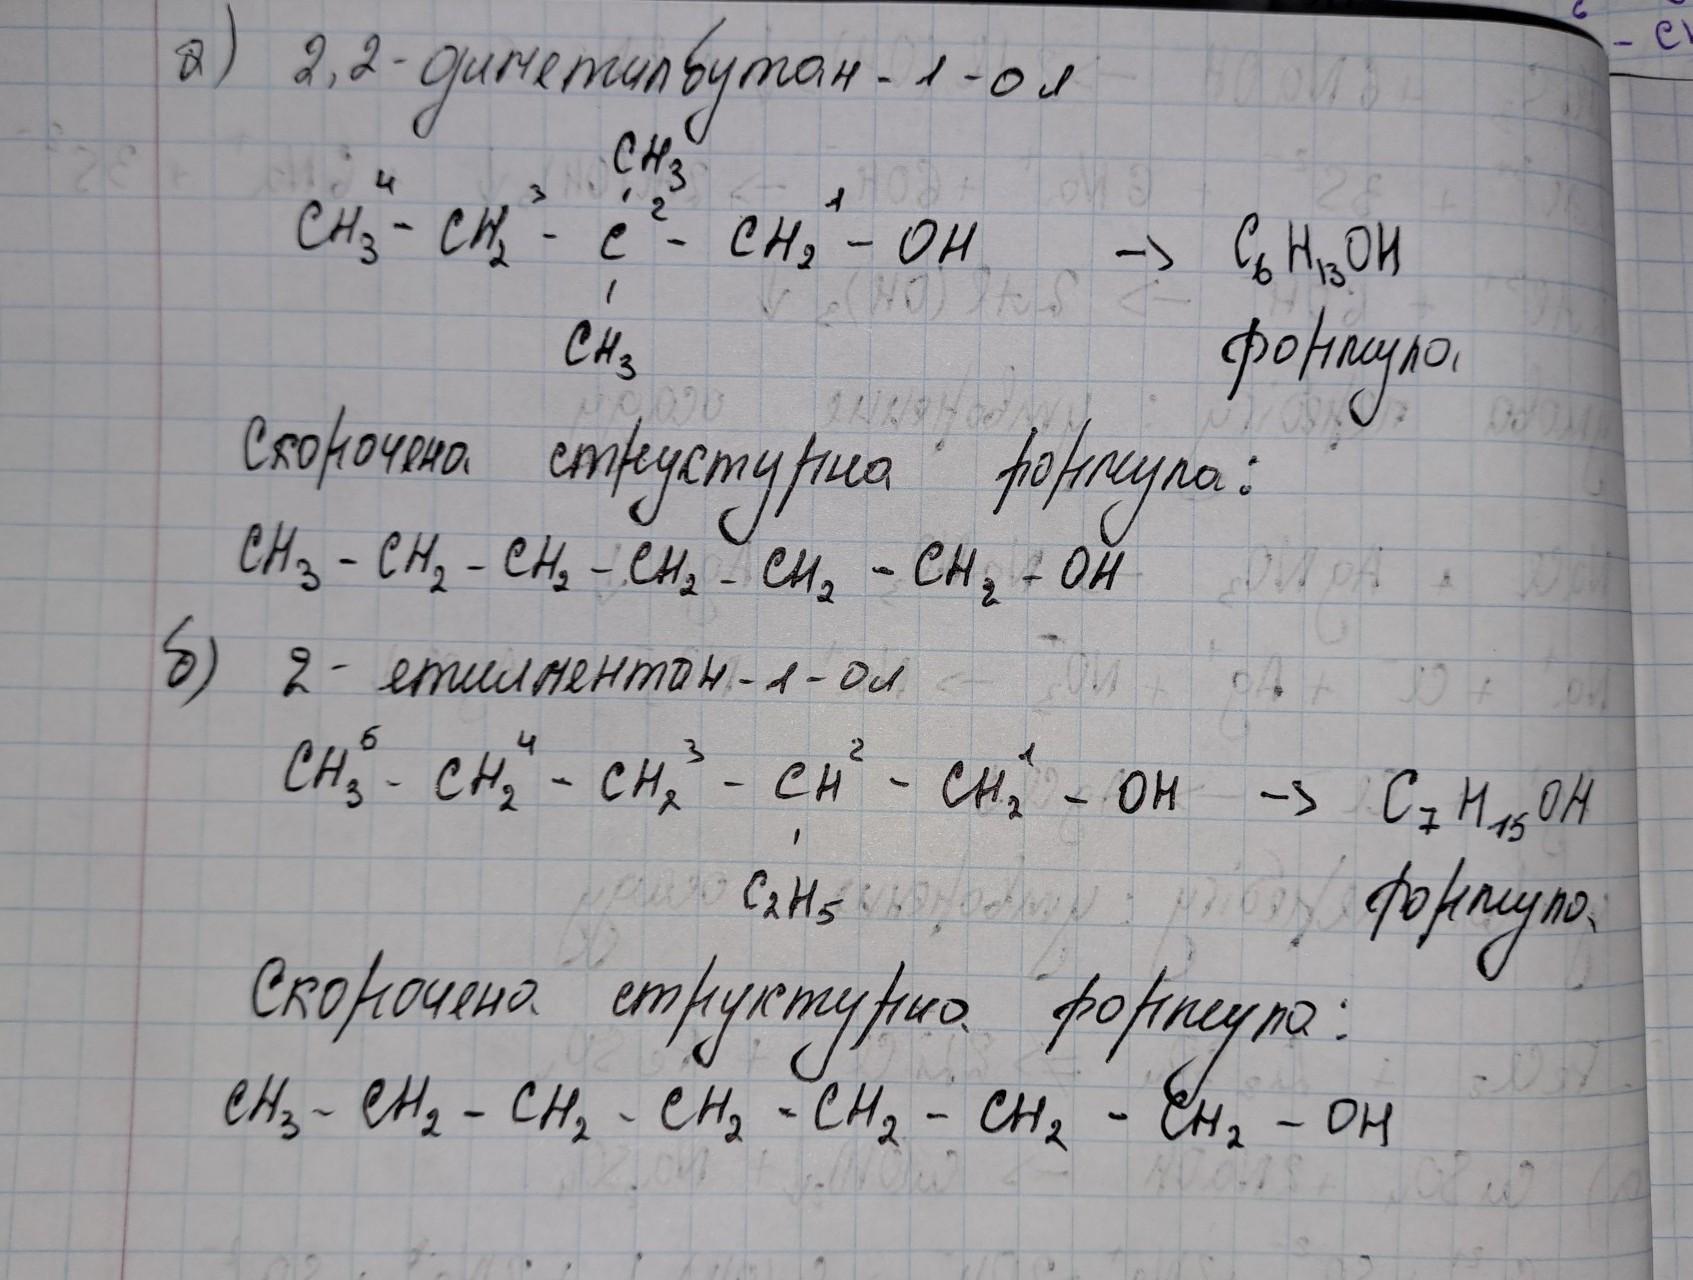 а) 2,2-диметилбутан-1-ол
CH3
CH3⁴ - CH2³ - C² - CH2¹ - OH -> C6H13OH
CH3 формула
Скорочена структурна формула:
CH3 - CH2 - CH2 - CH2 - CH2 - CH2 - OH
б) 2-етилпентан-1-ол
CH3⁵ - CH2⁴ - CH2³ - CH² - CH2¹ - OH -> C7H15OH
C2H5 формула
Скорочена структурна формула:
CH3 - CH2 - CH2 - CH2 - CH2 - CH2 - CH2 - OH